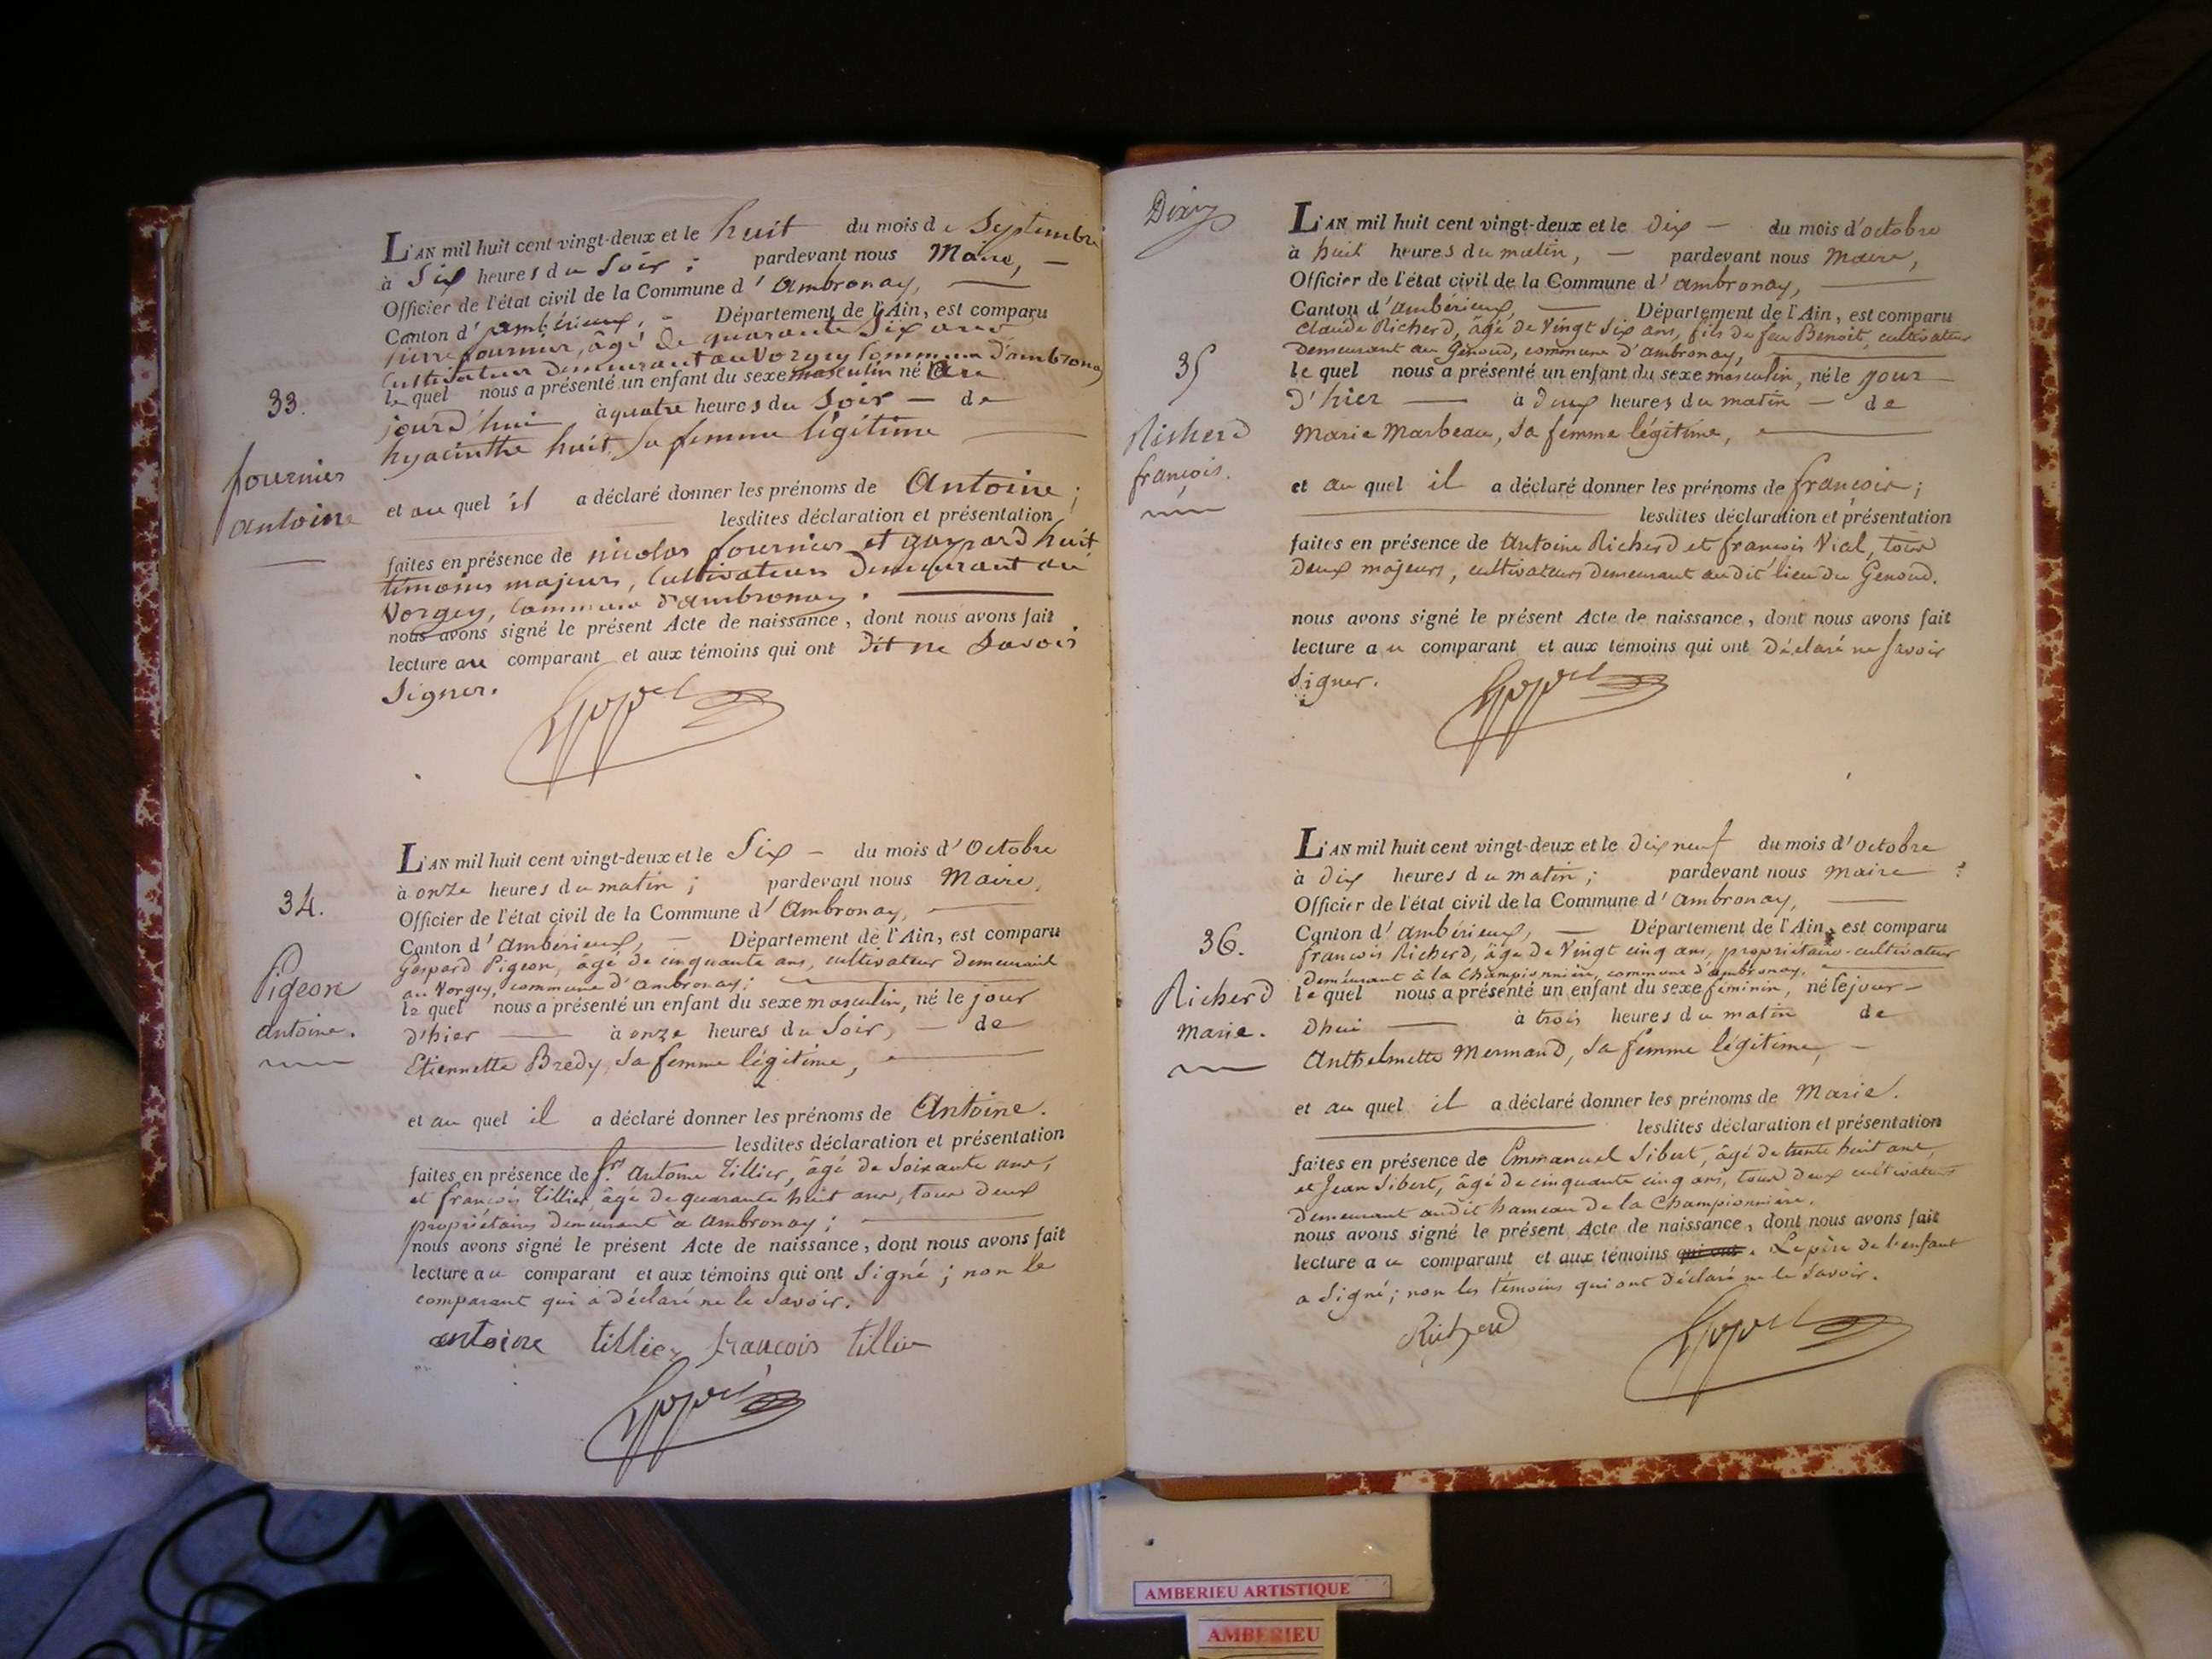 L'AN mil huit cent vingt-deux et le huit du mois de Septembre
à Six heures du Soir ; pardevant nous Maire, —
Officier de l'état civil de la Commune d'Ambronay,
Canton d'ambérieux, - Département de l'Ain, est comparu
pierre fournier, âgé de quarante Six ans
Cultivateur Demeurant au Vorgey Commune d'ambronay
33.
le quel nous a présenté un enfant du sexe masculin né le au
jourd'hui à quatre heures du Soir — de
hyacinthe huit Sa femme légitime
fournier
antoine
et au quel il a déclaré donner les prénoms de Antoine ;
lesdites déclaration et présentation
faites en présence de nicolas fournier et gaspard huit
témoins majeurs, Cultivateurs Demeurant au
Vorgey, Commune d'ambronay.
nous avons signé le présent Acte de naissance, dont nous avons fait
lecture au comparant et aux témoins qui ont dit ne Savoir
Signer.
L'AN mil huit cent vingt-deux et le Six — du mois d'Octobre
à onze heures du matin ; pardevant nous Maire,
34.
Officier de l'état civil de la Commune d'Ambronay,
Canton d'ambérieux, — Département de l'Ain, est comparu
Gaspard Pigeon, âgé de cinquante ans, cultivateur demeurant
au Vorgey, commune d'ambronay ;
Pigeon
antoine.
le quel nous a présenté un enfant du sexe masculin, né le jour
d'hier — à onze heures du Soir, — de
Etiennette Bredy, Sa femme légitime,
et au quel il a déclaré donner les prénoms de Antoine.
lesdites déclaration et présentation
faites en présence de Sr. Antoine Tillier, âgé de Soixante ans,
et françois Tillier, âgé de quarante huit ans, tous deux
propriétaires demeurant à ambronay ;
nous avons signé le présent Acte de naissance, dont nous avons fait
lecture au comparant et aux témoins qui ont Signé ; non le
comparant qui a déclaré ne le Savoir.
antoine tillier francois tillier
L'AN mil huit cent vingt-deux et le dix — du mois d'octobre
à huit heures du matin, — pardevant nous Maire,
Officier de l'état civil de la Commune d'ambronay,
Canton d'ambérieux, — Département de l'Ain, est comparu
Claude Richerd, âgé de Vingt Six ans, fils de feu Benoit, cultivateur
Demeurant au Genoud, commune d'ambronay,
35
le quel nous a présenté un enfant du sexe masculin, né le jour
d'hier — à deux heures du matin — de
Richerd
françois.
Marie Marbeau, Sa femme légitime,
et au quel il a déclaré donner les prénoms de françois ;
lesdites déclaration et présentation
faites en présence de Antoine Richerd et françois Vial, tous
Deux majeurs, cultivateurs demeurant audit lieu du Genoud.
nous avons signé le présent Acte de naissance, dont nous avons fait
lecture au comparant et aux témoins qui ont Déclaré ne Savoir
Signer.
L'AN mil huit cent vingt-deux et le dix neuf du mois d'octobre
à dix heures du matin ; pardevant nous Maire
Officier de l'état civil de la Commune d'ambronay,
36.
Canton d'ambérieux, — Département de l'Ain, est comparu
françois Richerd, âgé de Vingt cinq ans, propriétaire-cultivateur
demeurant à la Championnière, commune d'ambronay,
Richerd
Marie.
le quel nous a présenté un enfant du sexe féminin, né le jour-
dhui — à trois heures du matin de
Anthelmette Mermand, Sa femme légitime, —
et au quel il a déclaré donner les prénoms de Marie.
lesdites déclaration et présentation
faites en présence de Emmanuel Sibert, âgé de trente huit ans,
et Jean Sibert, âgé de cinquante cinq ans, tous deux cultivateurs
demeurant audit hameau de la Championnière.
nous avons signé le présent Acte de naissance, dont nous avons fait
lecture au comparant et aux témoins qui ont. Le père de l'enfant
a Signé ; non les témoins qui ont déclaré ne le Savoir.
Richerd
AMBERIEU ARTISTIQUE
AMBERIEU